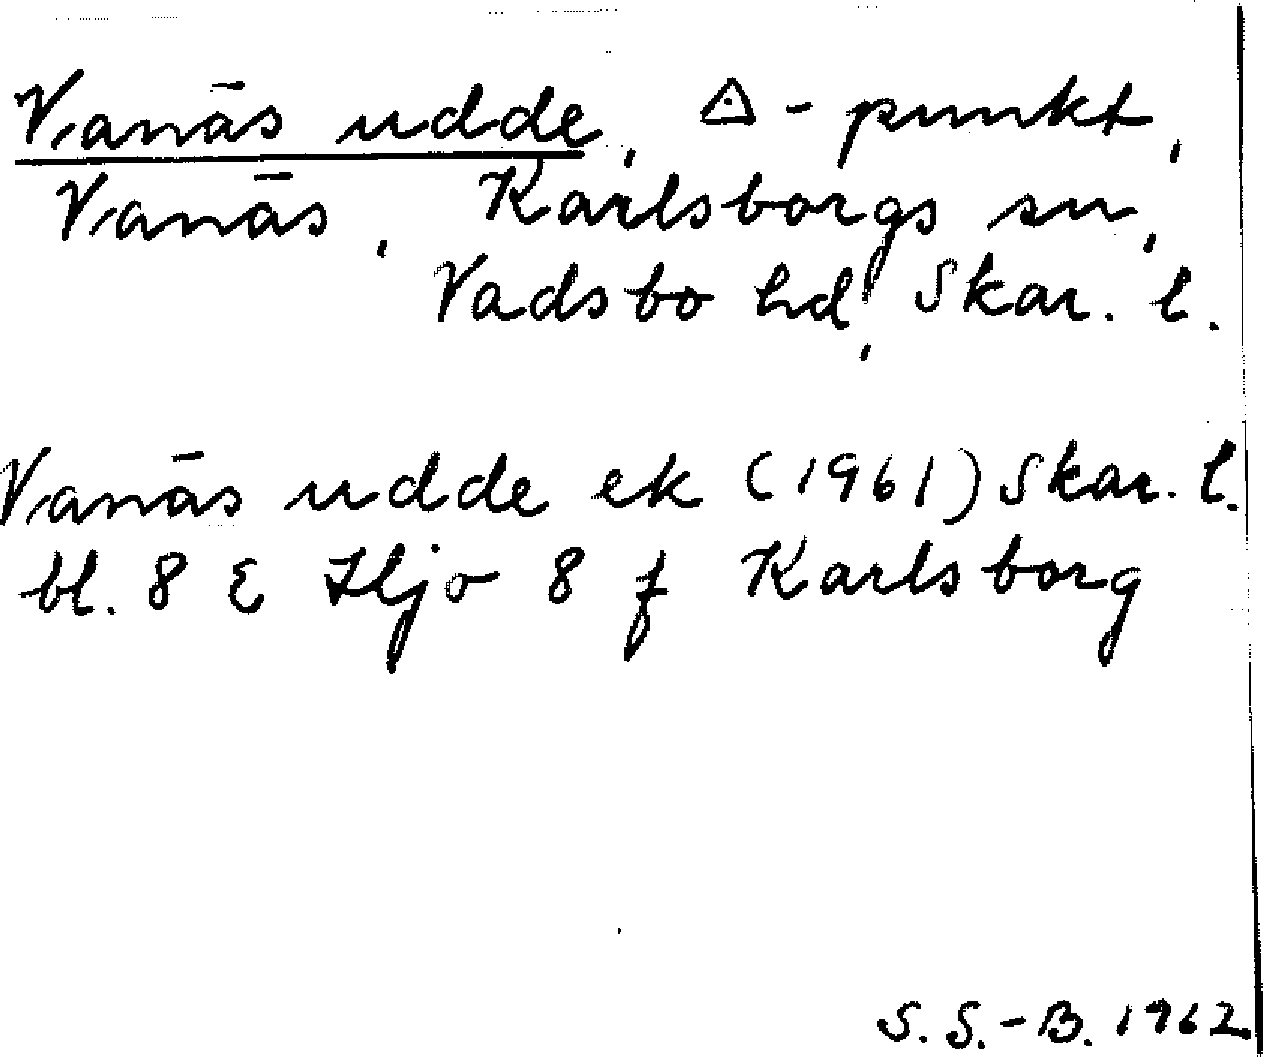 Vanäs udde, △-punkt,
Vanäs, Karlsborgs sn,
Vadsbo hd, Skar. l.
Vanäs udde ek (1961) Skar. l.
bl. 8 E Hjo 8 f Karlsborg
S. S.-B. 1962